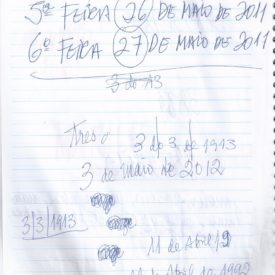 5ª FEIRA (26) DE MAIO DE 2011
6º FEIRA (27) DE MAIO DE 2011
3 do A3
Tres o 3 do 3 de 1913
3 de maio de 2012
3/3/1913
11 de Abril 2
11 de Abril de 1992